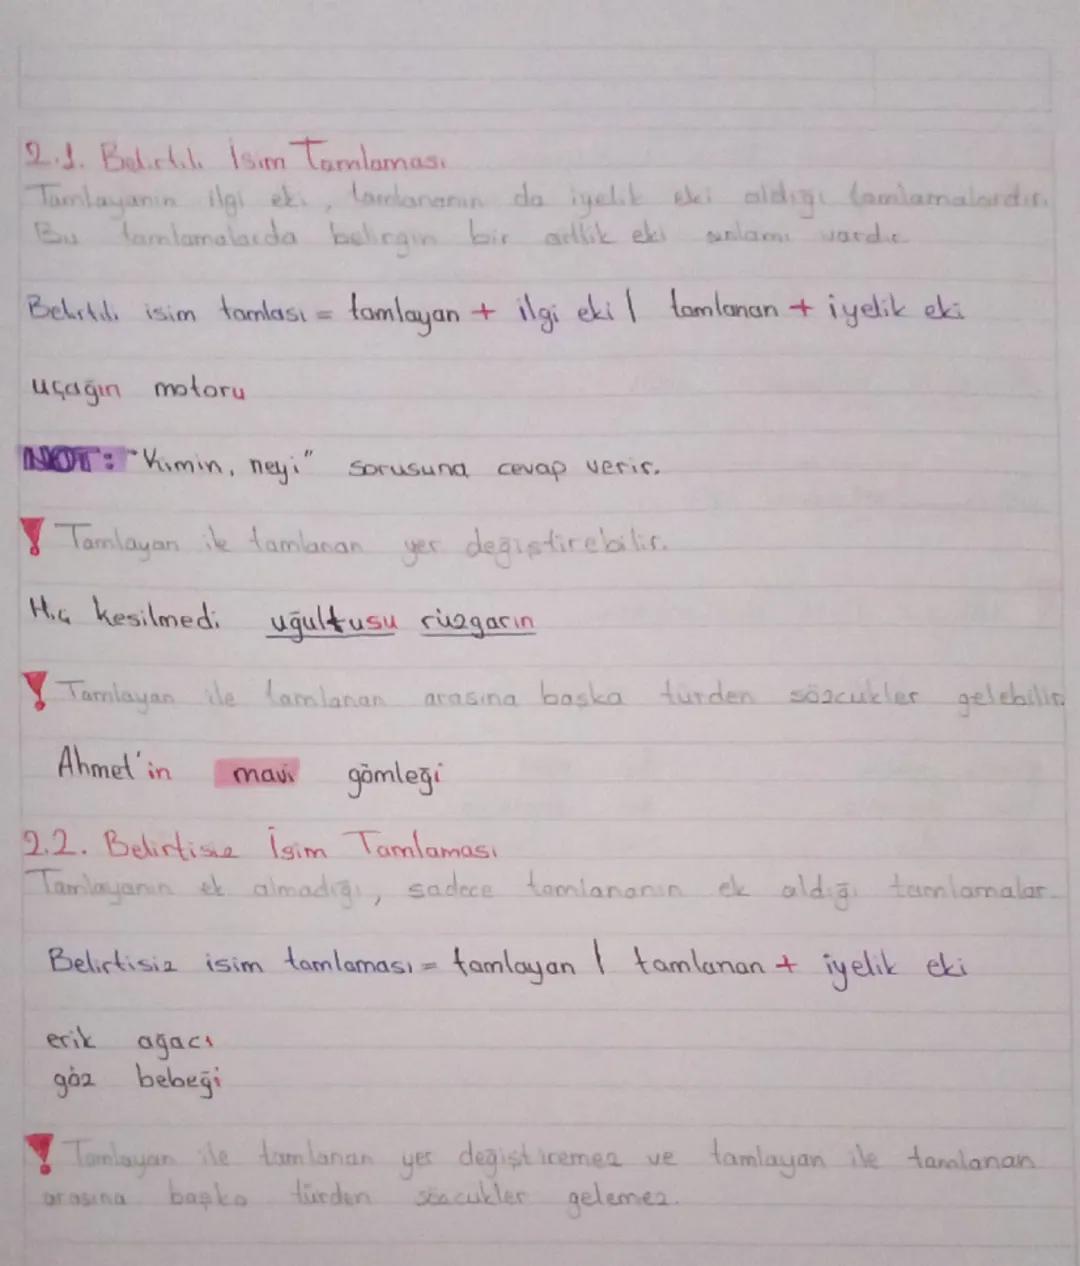 2.1. Belirtili İsim Tamlaması
Tamlayanın ilgi eki, tamlananın da iyelik eki aldığı tamlamalardır.
Bu tamlamalarda belirgin bir aitlik eki anlamı vardır
Belirtili isim tamlası = tamlayan + ilgi eki | tamlanan + iyelik eki
uçağın motoru
NOT: "Kimin, neyi" sorusuna cevap verir.
! Tamlayan ile tamlanan yer değiştirebilir.
Hiç kesilmedi uğultusu rüzgarın
! Tamlayan ile tamlanan arasına başka türden sözcükler gelebilir
Ahmet'in mavi gömleği
2.2. Belirtisiz İsim Tamlaması
Tamlayanın ek almadığı, sadece tamlananın ek aldığı tamlamalar.
Belirtisiz isim tamlaması = tamlayan | tamlanan + iyelik eki
erik ağacı
göz bebeği
! Tamlayan ile tamlanan yer değiştiremez ve tamlayan ile tamlanan
arasına başka türden sözcükler gelemez.